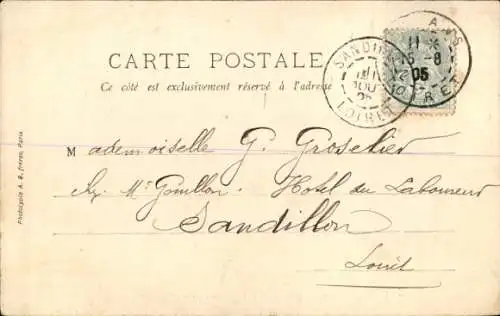 CARTE POSTALE
Ce côté est exclusivement réservé à l'adresse
SANDILLON
LOIRET
11
15 -8
05
RET
Mademoiselle G. Groselier
chez Mr Gouillon Hotel du Laboureur
Sandillon
Loiret
Phototypie A. B. frères, Paris